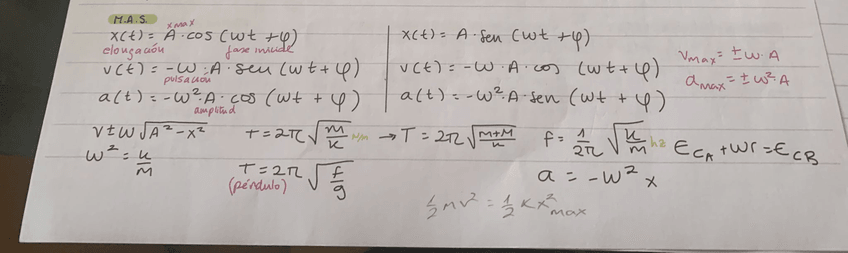 M.A.S.
xmax
x(t) = A · cos (ωt + φ)
elongación fase inicial
v(t) = -ω · A · sen (ωt + φ)
pulsación
a(t) = -ω² · A · cos (ωt + φ)
amplitud
x(t) = A · sen (ωt + φ)
v(t) = -ω · A · cos (ωt + φ)
a(t) = -ω² · A · sen (ωt + φ)
vmax = ± ω · A
amax = ± ω² · A
v ± ω √(A² - x²)
ω² = k/m
T = 2π √(m/k) N/m → T = 2π √((m+M)/k)
T = 2π √(f/g)
(péndulo)
f = 1/2π √(k/m) hz
ECA + Wr = ECB
a = -ω² x
½ mv² = ½ Kx²max